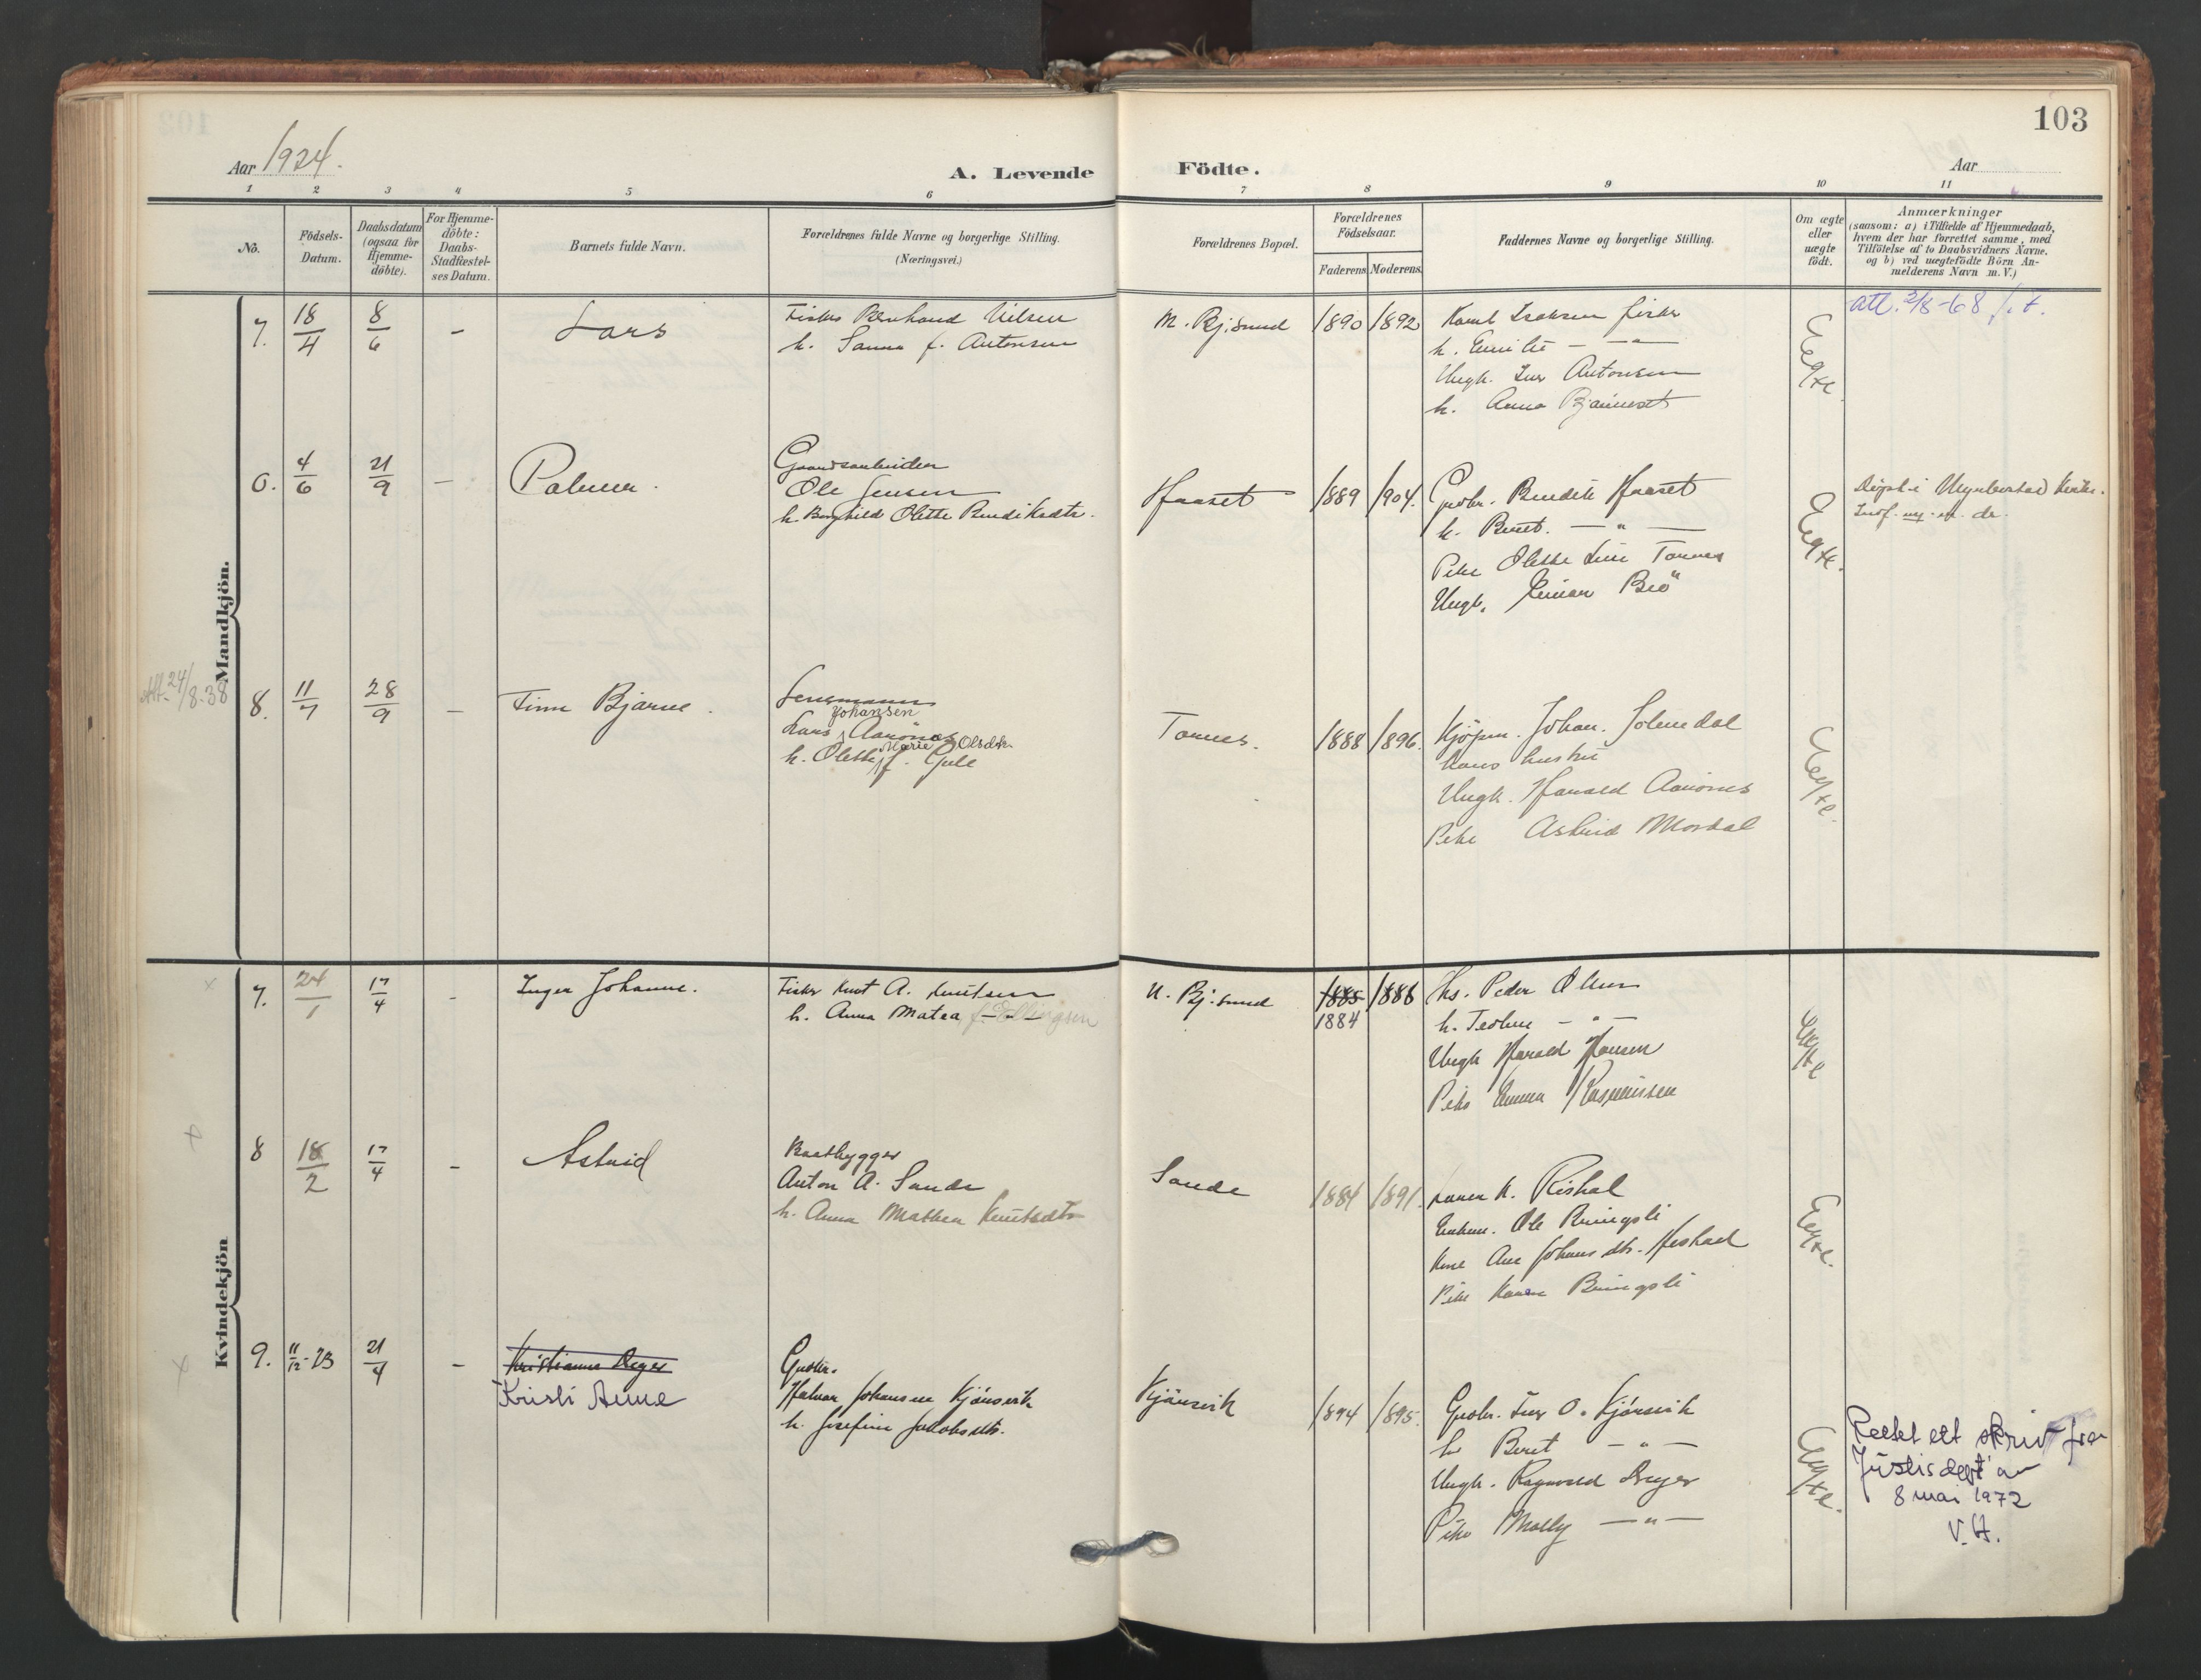 103
Aar 1924.
A. Levende Födte.
Aar
1 2 3 4 5 6 7 8 9 10 11
No.
Födsels-
Datum.
Daabsdatum
(ogsaa for
Hjemme-
döbte).
For Hjemme-
döbte:
Daabs-
Stadfæstel-
ses Datum.
Barnets fulde Navn.
Forældrenes fulde Navne og borgerlige Stilling.
(Næringsvei.)
Forældrenes Bopæl.
Forældrenes
Födselsaar.
Faderens
Moderens.
Faddernes Navne og borgerlige Stilling.
Om ægte
eller
uægte
födt.
Anmærkninger
(saasom: a) i Tilfælde af Hjemmedaab,
hvem der har forrettet samme, med
Tilföielse af to Daabsvidners Navne.
og b) ved uægtefödte Börn An-
melderens Navn m. V.)
Mandkjön.
7. 18/4 8/6 - Lars
Fisker Bernhard Nilsen
h. Sanna f. Antonsen
M. Bj.sund 1890 1892
Karel Isaksen fisker
h. Emilie - " -
Ungk. Ivar Antonsen
h. Anna
Ægte.
att. 2/8-68 f.t.
0. 4/6 21/9 - Palmer.
Gaardsarbeider
Ole Jensen
h. Borghild Olette Bendiksdtr.
Haaset 1889 1904.
Gaardbr. Bendik Haaset
h. Beret. - " -
Pike Olette Line Tornes
Ungk. Einar Bjö
Ægte.
Döpt i Kirke.
Att. 24/8-38
8. 11/7 28/9 - Finn Bjarne.
Lensmann
Johansen
Lars Aarönes
Marie Olsdtr.
h. Olette f. Gule
Tornes. 1888 1896.
Kjöpm. Johan Solemdal
hans hustru
Ungk. Harald Aarönes
Pike Astrid Mordal
Ægte.
Kvindekjön
7. 24/1 17/4 - Inger Johanne.
Fisker Knut A. Knutsen
h. Anna Matea f. Ellingsen
N. Bj.sund 1885 1886
1884
Hs. Peder Olsen
h. Teoline - " -
Ungk Harald Hansen
Pike Emma Rasmussen
Ægte
8 18/2 17/4 - Astrid
Baatbygger
Anton A. Sande
h. Anna Mathea Knutsdtr
Sande 1884 1891.
K. Riskal
Enkem. Ole Bringsli
Kone Ane Johansdtr.
Pike Karen Bringsli
Ægte.
9. 11/12-23 21/4 - Kristianne Dryer
Kristi Anne
Gaardbr.
Halvar Johansen Kjörsvik
h. Josefine Jakobsdtr.
Kjörsvik 1894 1895.
Gaardbr. Iver O. Kjörsvik
h. Beret - " -
Ungk. Ragnvald Dryer
Pike Molly - " -
Ægte.
Rettet ett skriv fra
Justisdept av
8 mai 1972
V.H.